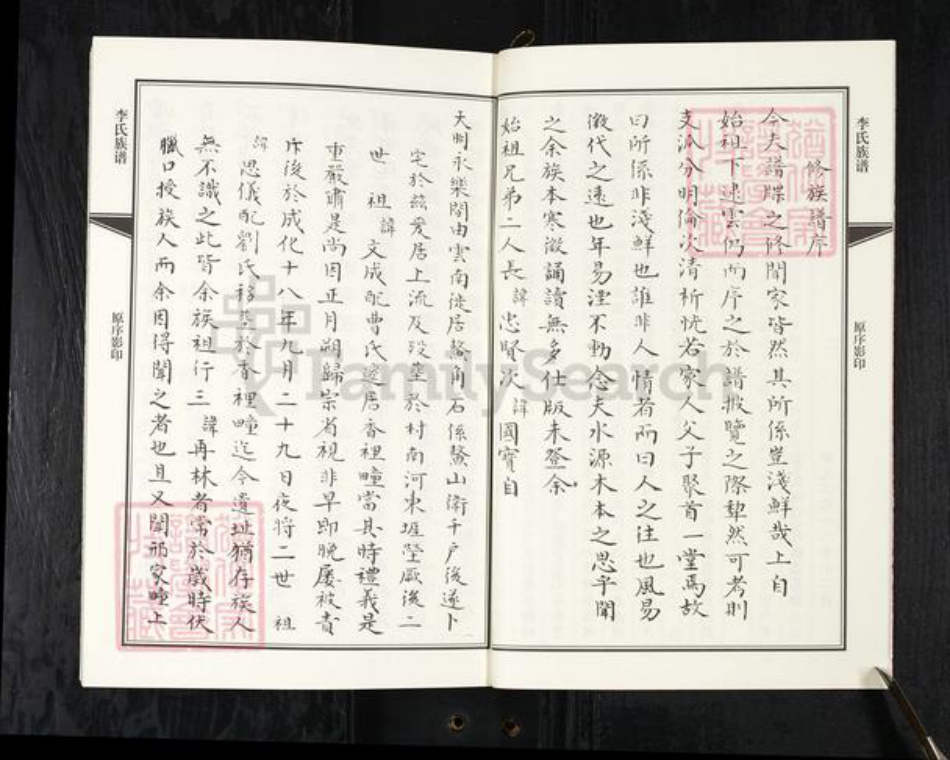 李氏族谱
原序影印
修族譜序
今夫譜牒之修聞家皆然其所係豈淺鮮哉上自
始祖下逮雲仍而序之於譜披覽之際犂然可考則
支派分明倫次清析恍若家人父子聚首一堂焉故
曰所係非淺鮮也誰非人情者而曰人之往也風易
微代之遠也年易湮不動念夫水源木本之思乎聞
之余族本寒微誦讀無多仕版未登余
始祖兄弟二人長諱忠賢次諱國寶自
大明永樂間由雲南徙居鰲角石係鰲山衛千户後遂卜
宅於茲爰居上流及殁塋於村南河東堐塋厥後二
世祖諱文成配曹氏遷居香裡疃當其時禮義是
重嚴肅是尚因正月朔歸宗省視非早即晚屢被責
斥後於成化十八年九月二十九日夜將二世祖
諱思儀配劉氏移塋於香裡疃迄今遺址猶存族人
無不識之此皆余族祖行三諱再林者常於歲時伏
臘口授族人而余因得聞之者也且又聞邢家疃上
李氏族谱
原序影印
FamilySearch